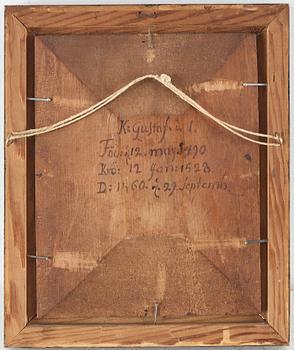 K: Gustaf. d 1.
Föd: 12. maj 1490
Krö: 12 Jan: 1528.
D: 1560. d. 29. Septemb.